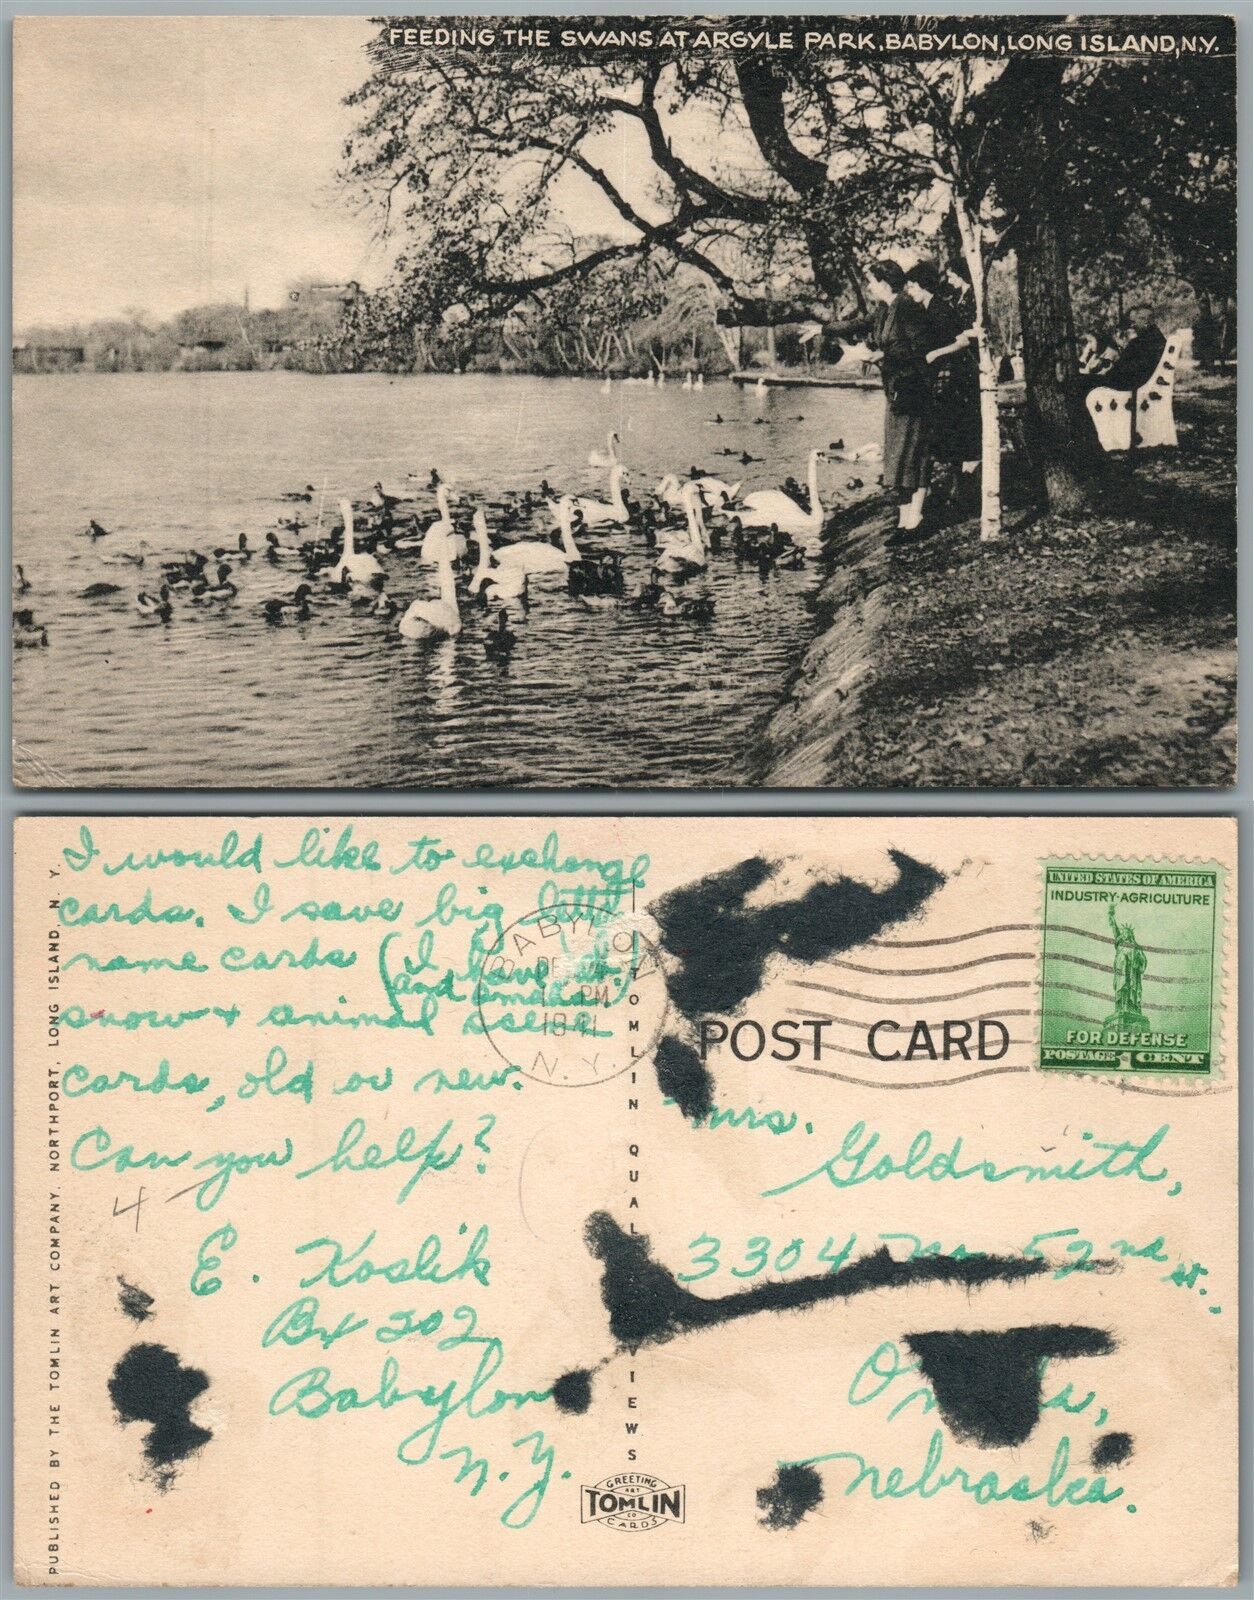 FEEDING THE SWANS AT ARGYLE PARK, BABYLON, LONG ISLAND, N.Y.
I would like to exchange
cards. I save big letter
name cards (I have
and
snow + animal
cards, old or new.
Can you help?
4
E. Koslik
Bx 202
Babylon
N.Y.
PUBLISHED BY THE TOMLIN ART COMPANY, NORTHPORT, LONG ISLAND, N. Y.
BABYLON
PM
1941
N. Y.
TOMLIN QUAL VIEWS
GREETING
ART
TOMLIN
CO
CARDS
POST CARD
UNITED STATES OF AMERICA
INDUSTRY-AGRICULTURE
FOR DEFENSE
POSTAGE 1 CENT
Mrs.
Goldsmith,
3304 No 52nd
st.,
Nebraska.